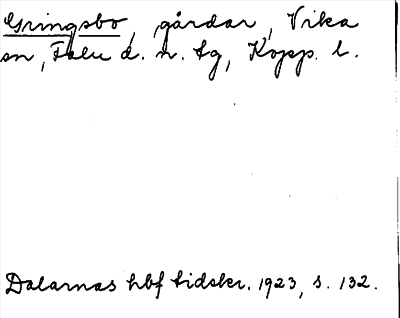 Gringsbo, gårdar, Vika
sn, Falu d. n. tg, Kopp. l.
Dalarnas hbf tidskr. 1923, s. 132.